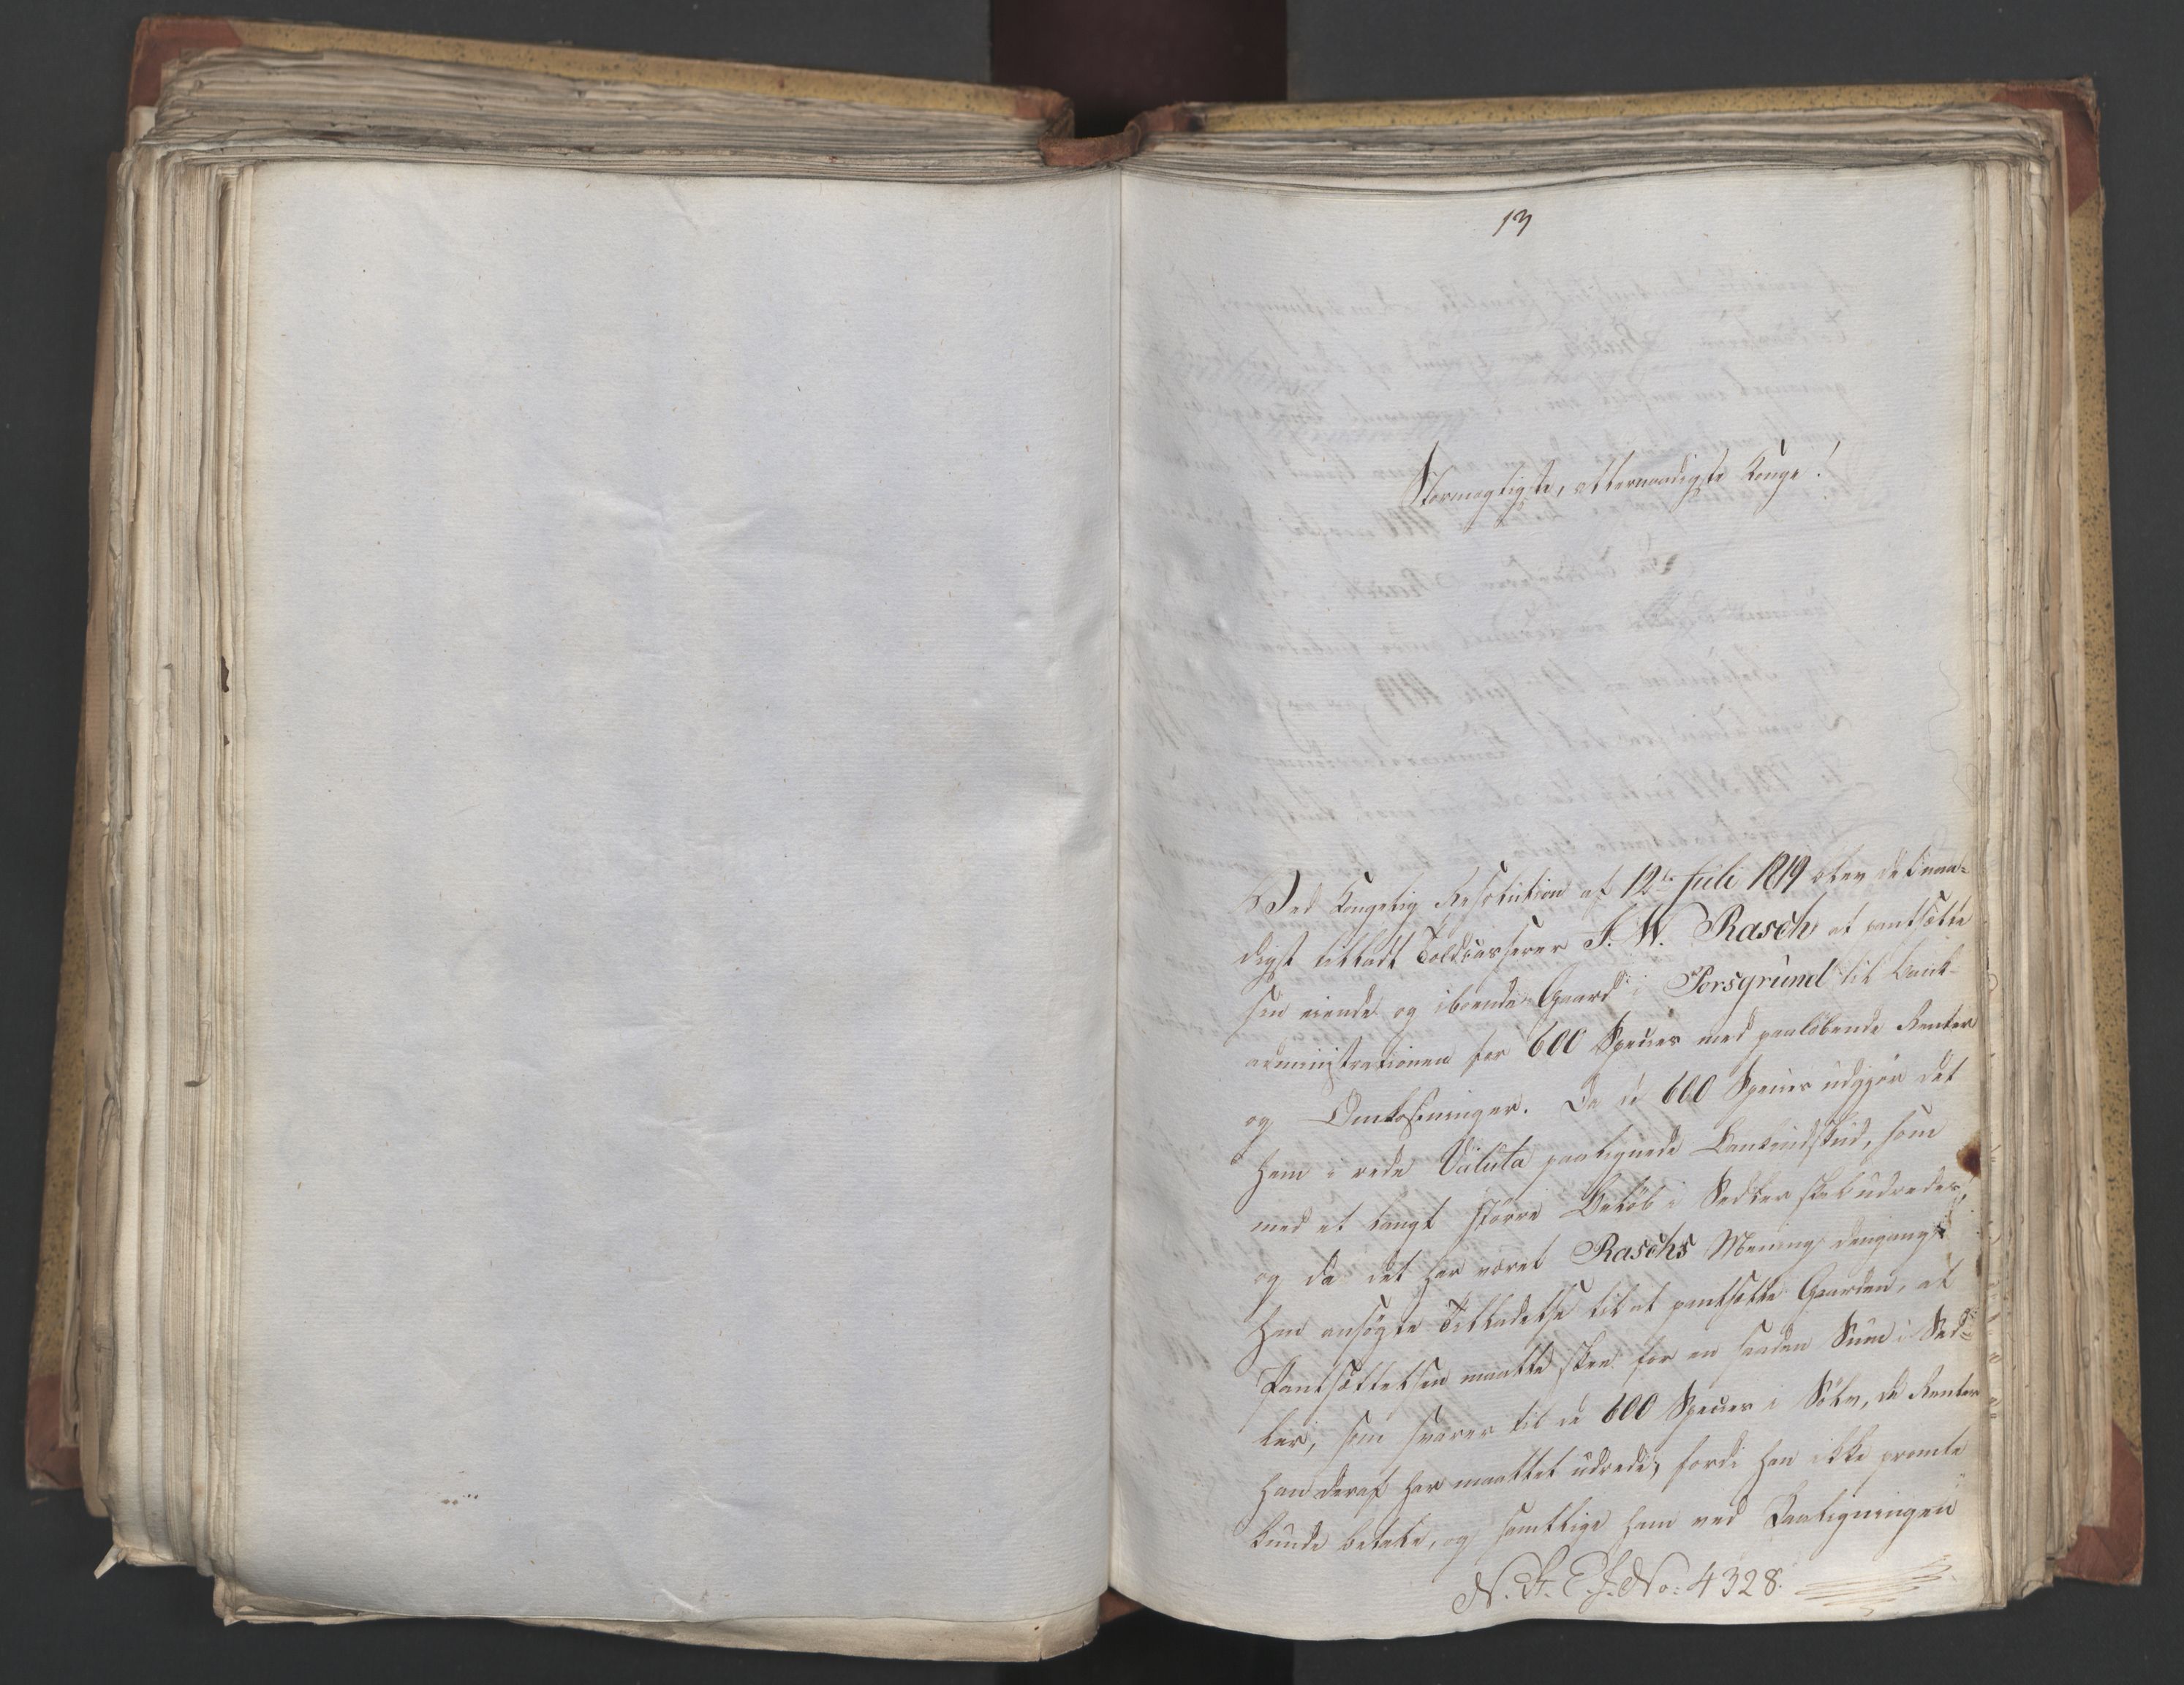 13
Stormægtigste, allernaadigste Konge!
Ved Kongelig Resolution af 12te Juli 1819 blev det naa-
digst tilladt Toldcasserer J. W. Rasch at pantsætte
sin eiende og iboende Gaard i Porsgrund til Bank-
administrationen for 600 Species med paaløbende Renter
og Omkostninger. Da de 600 Species udgjør det
ham i rede Valuta paalignede Bankindskud, som
med et langt større Beløb i Sedler skal udredes,
og da det har været Raschs Mening dengang
han ansøgte Tilladelse til at pantsætte Gaarden, at
Pantsættelsen maatte skee for en saadan Sum i Sed-
ler, som svarer til de 600 Species i Sølv, de Renter
han deraf har maattet udrede, fordi han ikke promte
kunde betale, og samtlige ham ved Paaligningen
No: 4328.